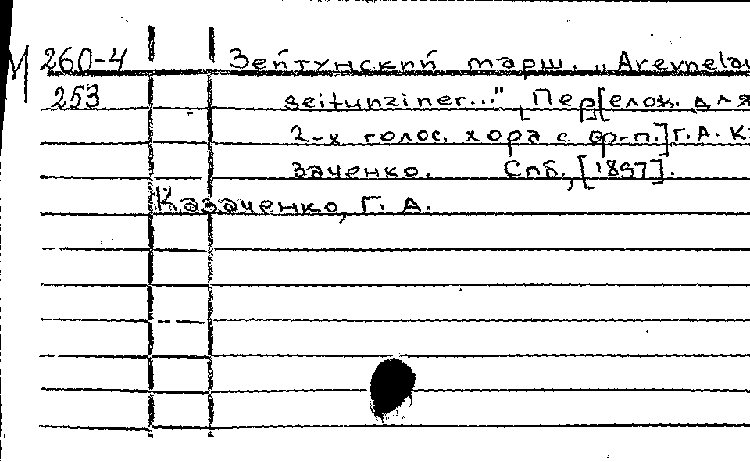 М 260-4 Зейтунский марш. „Arevnelav
253 seitunziner...", Пер[елож. для
2-х голос. хора с ф-п.] Г.А. Ка
заченко. Спб., [1897].
Казаченко, Г. А.